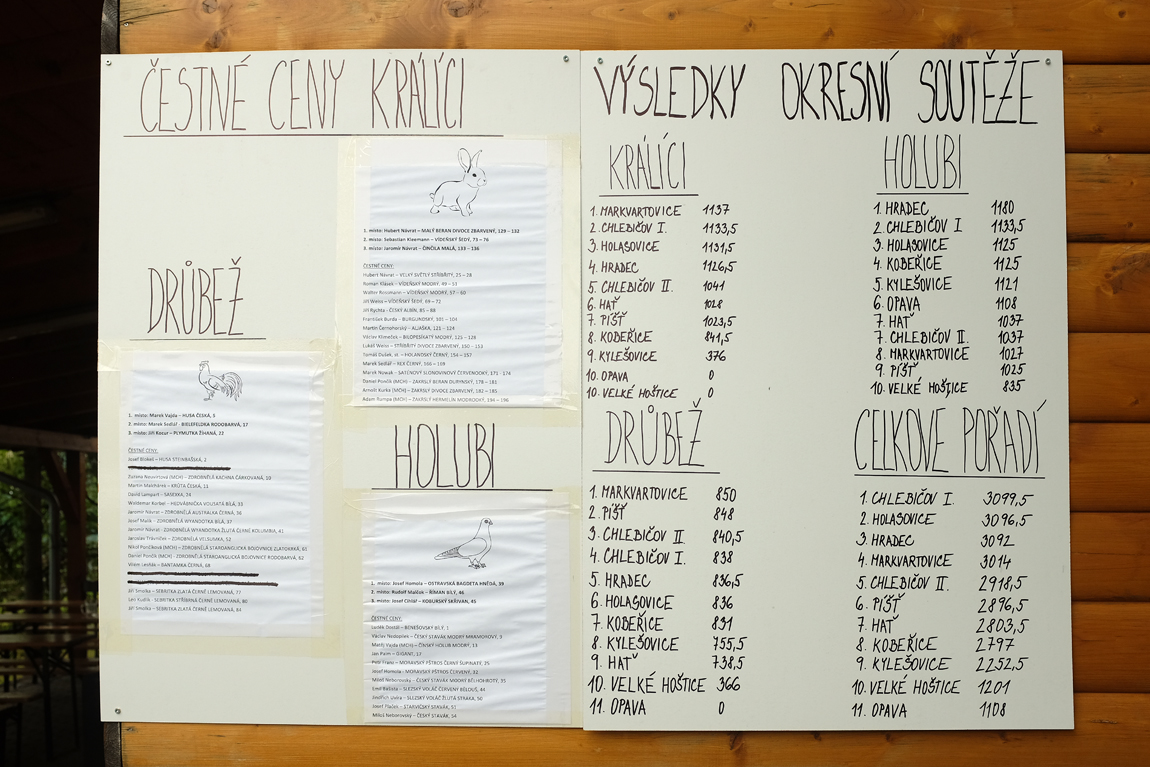 ČESTNÉ CENY KRÁLÍCI
1. místo: Hubert Návrat – MALÝ BERAN DIVOCE ZBARVENÝ, 129 – 132
2. místo: Sebastian Kleemann – VÍDEŇSKÝ ŠEDÝ, 73 – 76
3. místo: Jaromír Návrat – ČINČILA MALÁ, 133 – 136
ČESTNÉ CENY:
Hubert Návrat – VELKÝ SVĚTLÝ STŘÍBŘITÝ, 25 – 28
Roman Klásek – VÍDEŇSKÝ MODRÝ, 49 – 53
Walter Rossmann – VÍDEŇSKÝ MODRÝ, 57 – 60
Jiří Weiss – VÍDEŇSKÝ ŠEDÝ, 69 – 72
Jiří Rychta – ČESKÝ ALBÍN, 85 – 88
František Burda – BURGUNDSKÝ, 101 – 104
Martin Černohorský – ALJAŠKA, 121 – 124
Václav Klimeček – BÍLOPESÍKATÝ MODRÝ, 125 – 128
Lukáš Weiss – STŘÍBŘITÝ DIVOCE ZBARVENÝ, 150 – 153
Tomáš Dušek, st. – HOLANDSKÝ ČERNÝ, 154 – 157
Marek Sedlář – REX ČERNÝ, 166 – 169
Marek Nowak – SATÉNOVÝ SLONOVINOVÝ ČERVENOOKÝ, 171 - 174
Daniel Pončík (MCH) – ZAKRSLÝ BERAN DURYNSKÝ, 178 – 181
Arnošt Kurka (MCH) – ZAKRSLÝ DIVOCE ZBARVENÝ, 182 – 185
Adam Rumpa (MCH) – ZAKRSLÝ HERMELÍN MODROOKÝ, 194 – 196
DRŮBEŽ
1. místo: Marek Vajda – HUSA ČESKÁ, 5
2. místo: Marek Sedlář – BIELEFELDKA RODOBARVÁ, 17
3. místo: Jiří Kocur – PLYMUTKA ŽÍHANÁ, 22
ČESTNÉ CENY:
Josef Blokeš – HUSA STEINBAŠSKÁ, 2
Zuzana Neuwirtová (MCH) – ZDROBNĚLÁ KACHNA ČÁRKOVANÁ, 10
Martin Malchárek – KRŮTA ČESKÁ, 11
David Lampart – SASEXKA, 24
Waldemar Korbel – HEDVÁBNIČKA VOUSATÁ BÍLÁ, 33
Jaromír Návrat – ZDROBNĚLÁ AUSTRALKA ČERNÁ, 36
Josef Malík – ZDROBNĚLÁ WYANDOTKA BÍLÁ, 37
Jaromír Návrat – ZDROBNĚLÁ WYANDOTKA ŽLUTÁ ČERNĚ KOLUMBIA, 41
Jaroslav Trávníček – ZDROBNĚLÁ VELSUMKA, 52
Nikol Pončíková (MCH) – ZDROBNĚLÁ STAROANGLICKÁ BOJOVNICE ZLATOKRKÁ, 61
Daniel Pončík (MCH) – ZDROBNĚLÁ STAROANGLICKÁ BOJOVNICE RODOBARVÁ, 62
Vilém Levňák – BANTAMKA ČERNÁ, 68
Jiří Smolka – SEBRITKA ZLATÁ ČERNĚ LEMOVANÁ, 77
Leo Kudlík - SEBRITKA STŘÍBRNÁ ČERNĚ LEMOVANÁ, 80
Jiří Smolka – SEBRITKA ZLATÁ ČERNĚ LEMOVANÁ, 84
HOLUBI
1. místo: Josef Homola – OSTRAVSKÁ BAGDETA HNĚDÁ, 39
2. místo: Rudolf Malčok – ŘIMAN BÍLÝ, 46
3. místo: Josef Cihlář – KOBURSKÝ SKŘIVAN, 45
ČESTNÉ CENY:
Luděk Dostál – BENEŠOVSKÝ BÍLÝ, 1
Václav Nedopilek – ČESKÝ STAVÁK MODRÝ MRAMOROVÝ, 9
Matěj Vajda (MCH) – ČÍNSKÝ HOLUB MODRÝ, 13
Jan Palm – GIGANT, 17
Petr Franc – MORAVSKÝ PŠTROS ČERNÝ ŠUPINATÝ, 25
Josef Homola – MORAVSKÝ PŠTROS ČERVENÝ, 32
Miloš Neborovský – ČESKÝ STAVÁK MODRÝ BĚLOHROTÝ, 35
Emil Bašista – SLEZSKÝ VOLÁČ ČERVENÝ BĚLOUŠ, 44
Jindřich Uvíra – SLEZSKÝ VOLÁČ ŽLUTÁ STRAKA, 50
Josef Plaček – STARVIČSKÝ STAVÁK, 51
Miloš Neborovský – ČESKÝ STAVÁK, 54
VÝSLEDKY OKRESNÍ SOUTĚŽE
KRÁLÍCI
1. MARKVARTOVICE 1137
2. CHLEBIČOV I. 1133,5
3. HOLASOVICE 1131,5
4. HRADEC 1126,5
5. CHLEBIČOV II. 1041
6. HAŤ 1028
7. PÍŠŤ 1023,5
8. KOBEŘICE 841,5
9. KYLEŠOVICE 376
10. OPAVA 0
11. VELKÉ HOŠTICE 0
HOLUBI
1. HRADEC 1180
2. CHLEBIČOV I 1133,5
3. HOLASOVICE 1125
4. KOBEŘICE 1125
5. KYLEŠOVICE 1121
6. OPAVA 1108
7. HAŤ 1037
7. CHLEBIČOV II. 1037
8. MARKVARTOVICE 1027
9. PÍŠŤ 1025
10. VELKÉ HOŠTICE 835
DRŮBEŽ
1. MARKVARTOVICE 850
2. PÍŠŤ 848
3. CHLEBIČOV II 840,5
4. CHLEBIČOV I. 838
5. HRADEC 836,5
6. HOLASOVICE 836
7. KOBEŘICE 831
8. KYLEŠOVICE 755,5
9. HAŤ 738,5
10. VELKÉ HOŠTICE 366
11. OPAVA 0
CELKOVÉ POŘADÍ
1. CHLEBIČOV I. 3099,5
2. HOLASOVICE 3096,5
3. HRADEC 3092
4. MARKVARTOVICE 3014
5. CHLEBIČOV II. 2918,5
6. PÍŠŤ 2896,5
7. HAŤ 2803,5
8. KOBEŘICE 2797
9. KYLEŠOVICE 2252,5
10. VELKÉ HOŠTICE 1201
11. OPAVA 1108